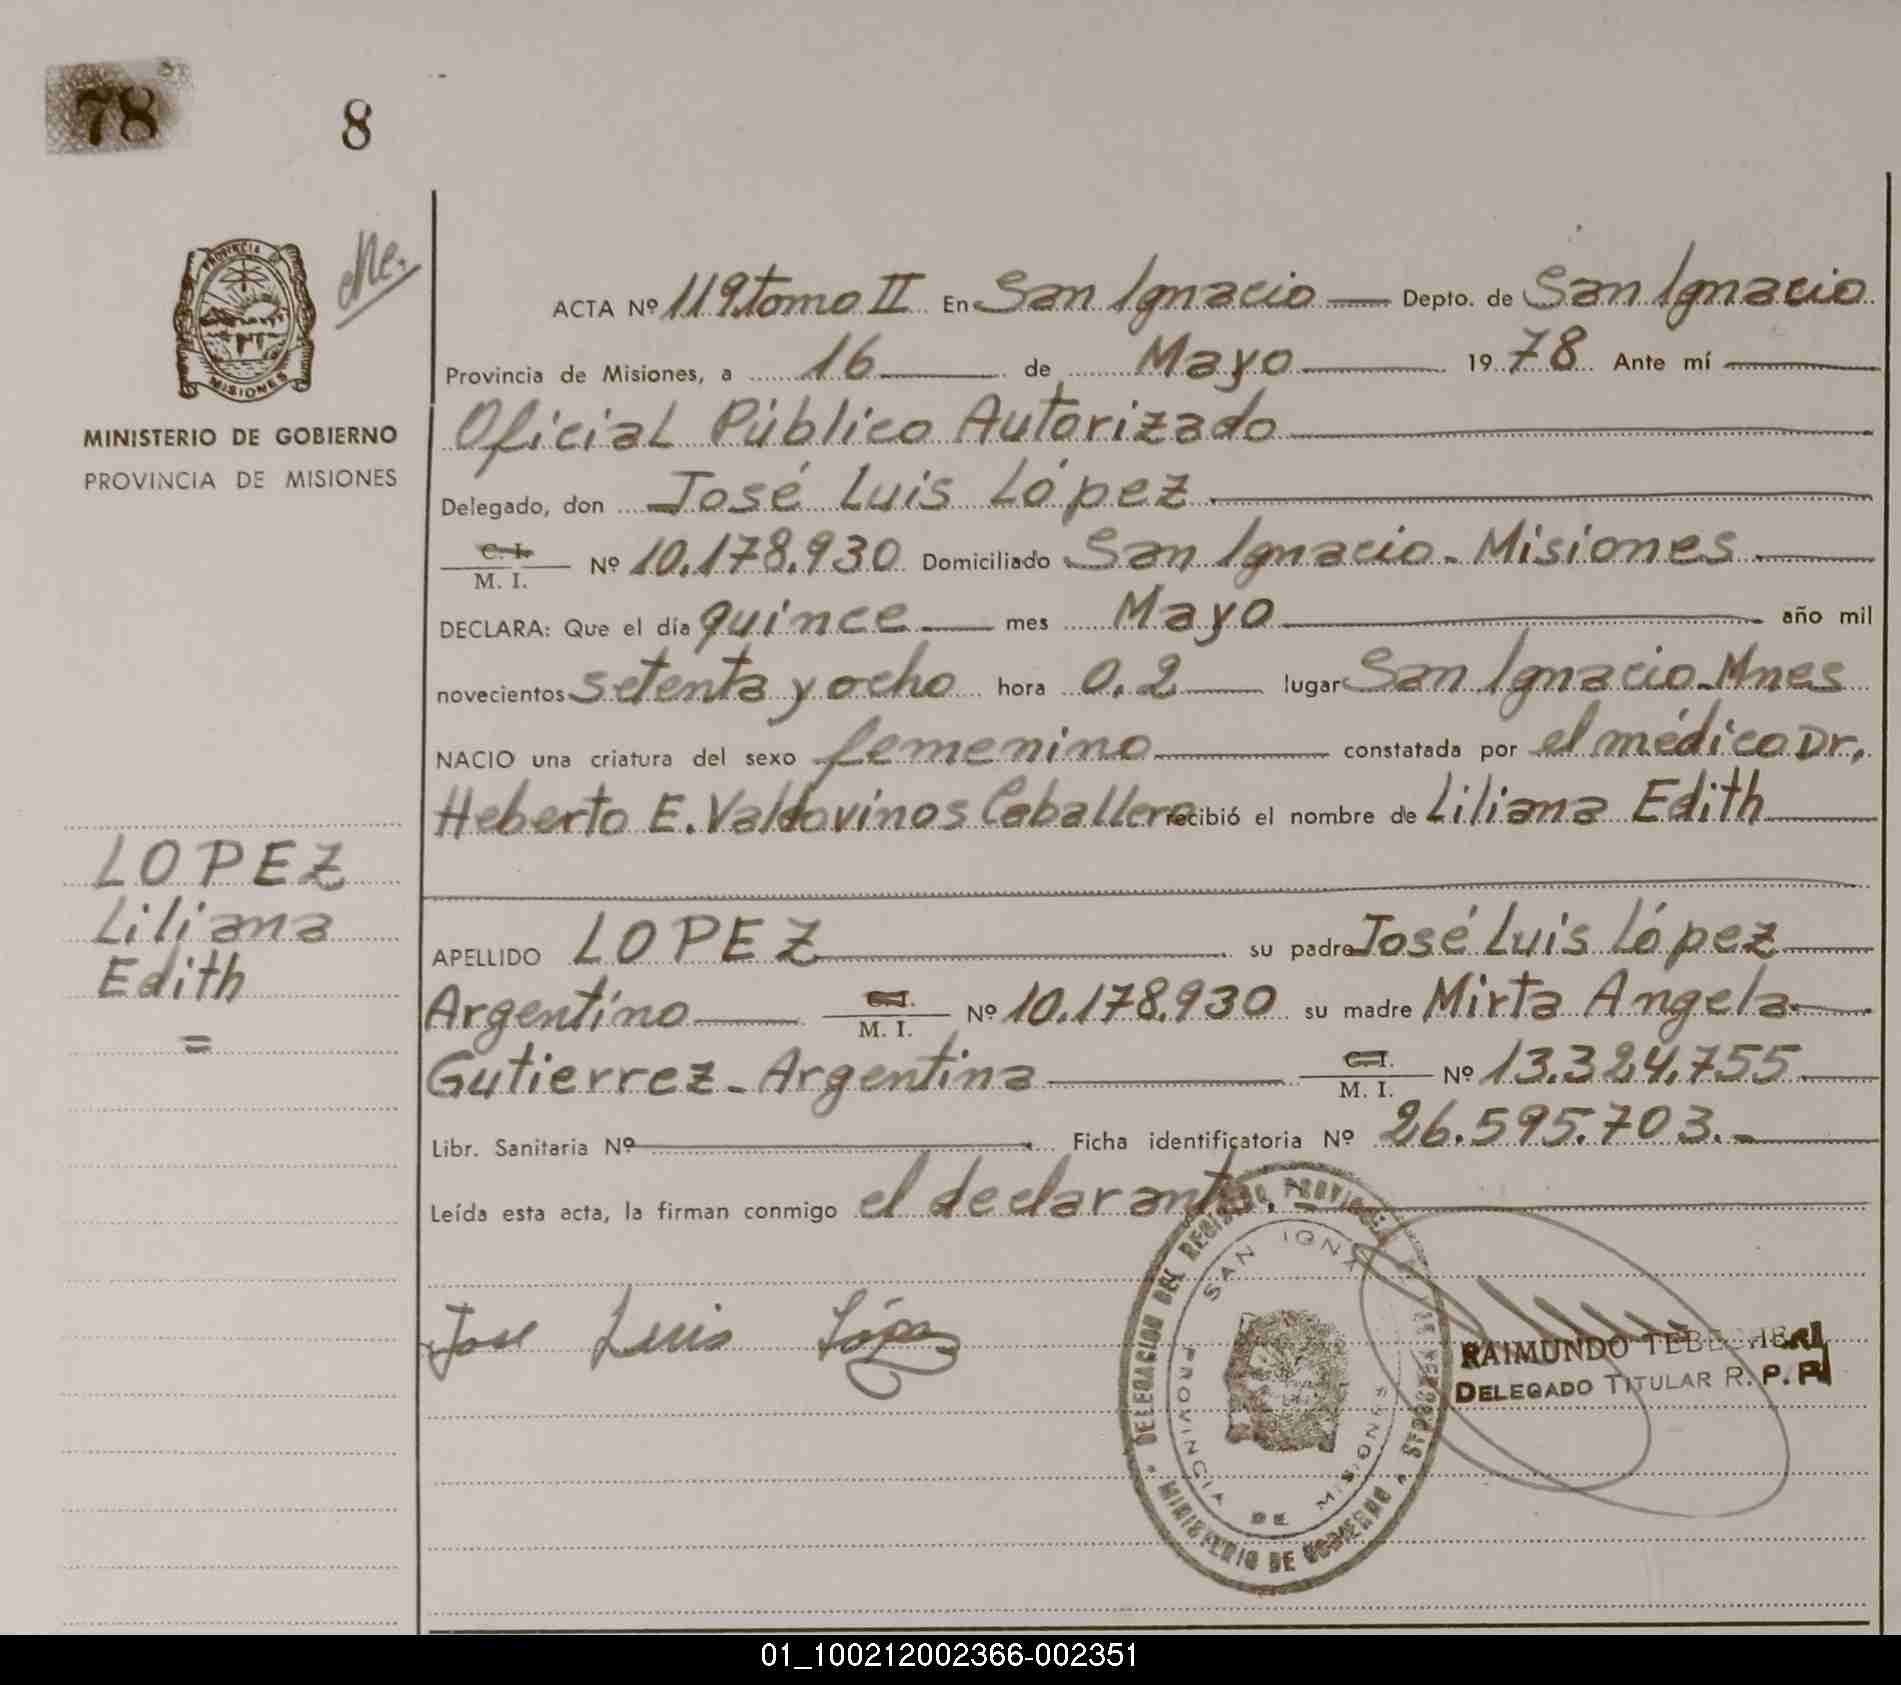 78
8
PROVINCIA DE
MISIONES
MINISTERIO DE GOBIERNO
PROVINCIA DE MISIONES
LOPEZ
Liliana
Edith
=
ACTA Nº 119 tomo II En San Ignacio Depto. de San Ignacio
Provincia de Misiones, a 16 de Mayo 1978 Ante mí
Oficial Público Autorizado
Delegado, don José Luis López
C. I.
M. I. Nº 10.178.930 Domiciliado San Ignacio - Misiones
DECLARA: Que el día quince mes Mayo año mil
novecientos setenta y ocho hora 0.2 lugar San Ignacio - Mnes
NACIO una criatura del sexo femenino constatada por el médico Dr.
Heberto E. Valdovinos Caballero recibió el nombre de Liliana Edith
APELLIDO LOPEZ su padre José Luis López
Argentino C. I.
M. I. Nº 10.178.930 su madre Mirta Angela
Gutierrez - Argentina C. I.
M. I. Nº 13.324.755
Libr. Sanitaria Nº Ficha identificatoria Nº 26.595.703.-
Leída esta acta, la firman conmigo el declarante.
Jose Luis López
DELEGACION DEL REGISTRO PROVINCIAL DE LAS PERSONAS
MINISTERIO DE GOBIERNO
SAN IGNACIO
PROVINCIA DE MISIONES
RAIMUNDO
DELEGADO TITULAR R. P. P.
01_100212002366-002351